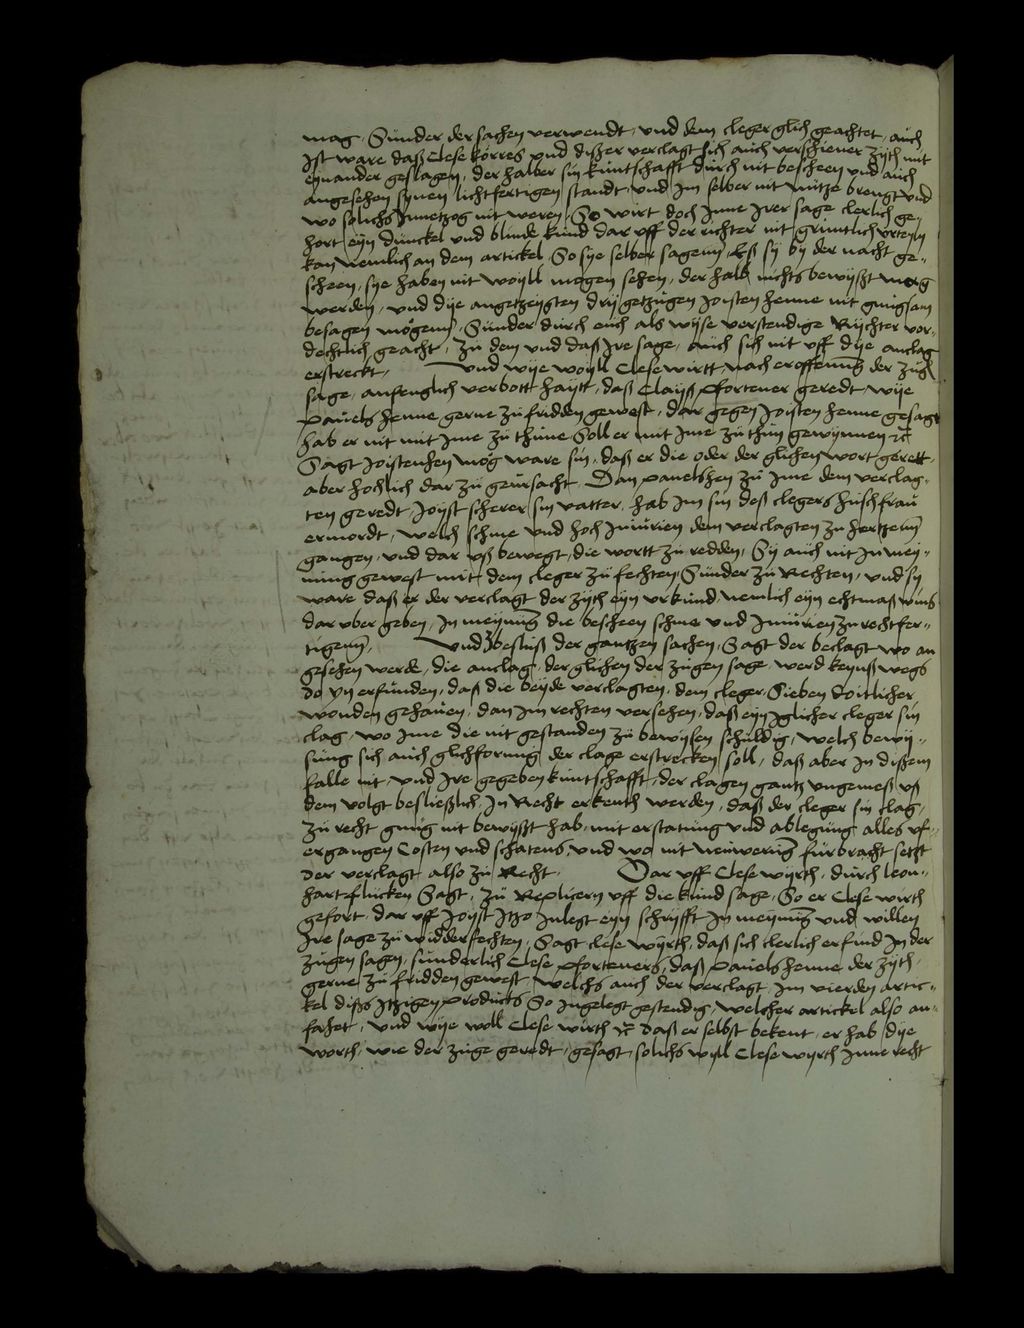 mag, Sunder der sachen verwendt, und dem cleger glich geachtet, auch
Ist ware daß Clese korres und dißer verclagt sich auch verschiener Zyth mit
eynander geslagen, der halber sin kuntschafft durch nit bescheen und auch
angesehen synen lichtfertigen standt, und Im selber nit nutze brengt und
wo solichs Innetzog nit weren, So wirt doch Inne Irer sage clerlich ge-
hort eyn dunckel und blinde kund dar uff der richter nit gruntlich urteyln
kan nemlich an dem artickel So sye selber sagenn, Eß sy by der nacht ge-
scheen, sye haben nit woyll mogen sehen, der halb nichts bewyßt mag
werden, und dye angetzeygten dry getzugen Joisten henne nit gnugsam
besagen mögenn, Sunder durch euch als wyse verstendige Rychter vor-
dechtlich geacht, Zu dem und daß Ire sage, auch sich nit uff dye anclag
erstreckt, Und wye woyll Clese wirtt, nach eroffenung der zug
sage, anfenglich verbott hayt, daß Clayß Pfortener geredt, wye
Pauels henne gerne zu fridden gewest, dar gegen Joisten henne gesagt
hab er nit mit Ime zu thune Soll er mit Ime zu thun gewynnen etc
Sagt Joistenhen mög ware sin, daß er die oder der glichen wort gerett,
aber hochlich dar zu geursacht, Dan pauelshen zu Ime dem verclag-
ten geredt, Joyst scherer sin vatter, hab Im sin deß clegers hußfrau
ermordt, welch schme und hoch Iniurien dem verclagten zu hertzenn
gangen, und dar uß bewegt, die wortt zu redden, Sy auch nit In mey-
nung gewest mit dem cleger zu fechten, Sunder zu Rechten, und sy
ware daß er der verclagt der zyth eyn urkund, nemlich eyn echtmaß wins
dar uber geben, In meynung die bescheen schme und Iniurien zu rechtfer-
tigenn, Und zu besluß der gantzen sachen, Sagt der beclagt wo an
gesehen werde, die anclag, der glichen der zugen sage, werd keynß wegs
do Yn erfunden, daß die beyde verclagten, dem cleger, Sieben doitlicher
wonden gehauen, dan Im rechten versehen, daß eyn Iglicher cleger sin
clag, wo Ime die nit gestanden zu bewysen schuldig, welch bewy-
sung sich auch glichformig der clage erstrecken soll, daß aber In dißem
falle nit, und Ire gegeben kuntschafft, der clagen gantz ungemeß uß
dem volgt besließlich, In Recht erkenth werden, daß der cleger sin clag,
zu recht gnug nit bewyßt hab, mit erstatung und ablegung alles uf-
ergangen Costen und schatens, und wo nit neuwerung furbracht setzt
der verclagt also zu Recht, Dar uff Clese wyrth, durch leon-
hart flucken Sagt, zu Replicern uff die kund sage, So er Clese wirth
gefort, dar uff Joyst Itzo Inlegt eyn schryfft In meynung und willen
Ire sage zu widderfechten, Sagt clese wyrth, daß sich clerlich erfind In der
zugen sagen, sunderlich Clese Pforteners, daß Pauels henne der zyth,
gerne zu fridden gewest, welchs auch der verclagt Im vierden artic-
kel dißs Itzigen products So Ingelegt gestendig, welcher artickel also an-
fahet, und wye woll Clese wirth etc daß er selbst bekent, er hab dye
worth, wie der zuge geredt, gesagt, solichs wyll Clese wyrth Inne recht